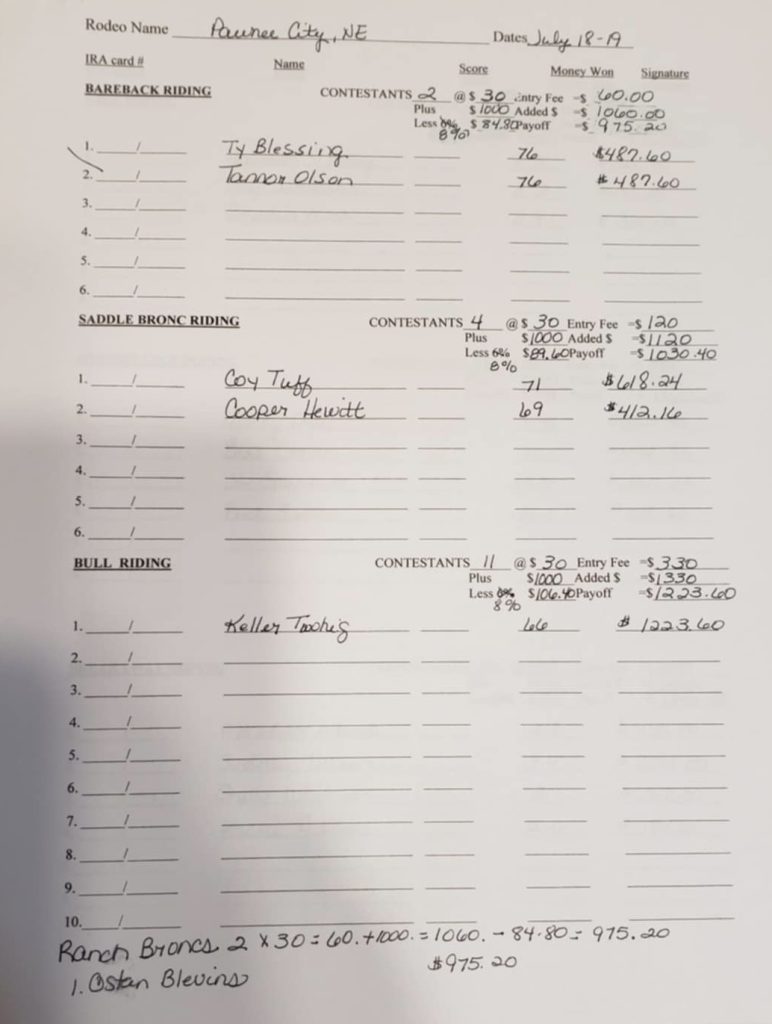 Rodeo Name Pawnee City, NE Dates July 18-19
IRA card # Name Score Money Won Signature
BAREBACK RIDING CONTESTANTS 2 @ $ 30 Entry Fee =$ 60.00
Plus $ 1000 Added $ =$ 1060.00
Less 6% $ 84.80 Payoff =$ 975.20
8%
1. / Ty Blessing 76 $487.60
2. / Tannor Olson 76 $487.60
3. /
4. /
5. /
6. /
SADDLE BRONC RIDING CONTESTANTS 4 @ $ 30 Entry Fee =$ 120
Plus $1000 Added $ =$1120
Less 6% $89.60 Payoff =$1030.40
8%
1. / Coy Tuff 71 $618.24
2. / Cooper Hewitt 69 $412.16
3. /
4. /
5. /
6. /
BULL RIDING CONTESTANTS 11 @ $ 30 Entry Fee =$ 330
Plus $1000 Added $ =$1330
Less 6% $106.40 Payoff =$1223.60
8%
1. / Keller 66 $ 1223.60
2. /
3. /
4. /
5. /
6. /
7. /
8. /
9. /
10. /
Ranch Broncs 2 X 30 = 60. +1000. = 1060. - 84.80 = 975.20
1. Ostan Blevins $975.20